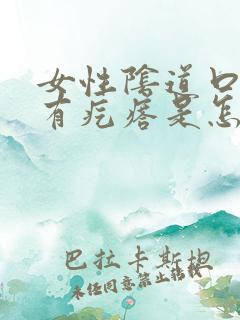 女性阴道口
有疙瘩是怎
巴拉卡斯拽
未经同意禁止转载